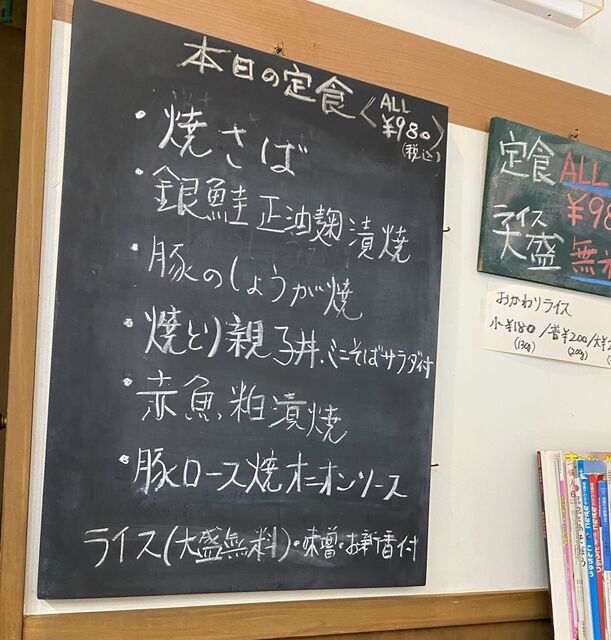 本日の定食〈ALL ¥980〉(税込)
・焼さば
・銀鮭 正油麹漬焼
・豚のしょうが焼
・焼とり親子丼.ミニそばサラダ付
・赤魚.粕漬焼
・豚ロース焼オニオンソース
ライス(大盛無料)・味噌・お新香付
定食 ALL
¥98
ライス
大盛 無
おかわりライス
小¥180/普¥200/大¥
(130g) (200g)